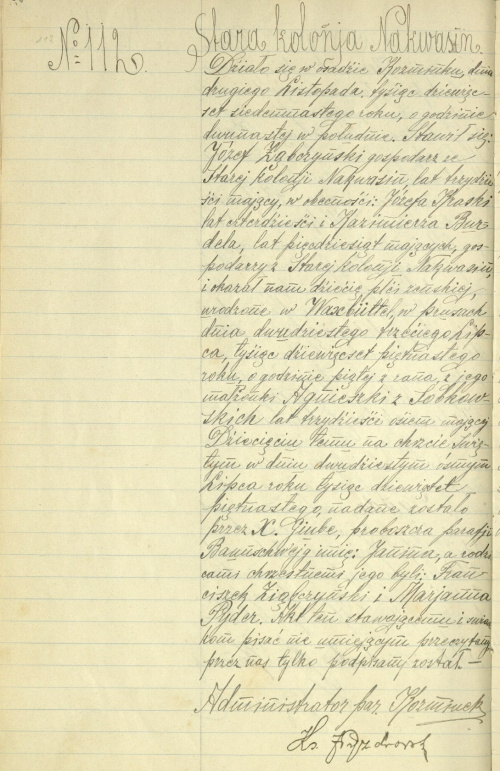 № 112.
Stara kolonja Nakwasin.
Działo się w osadzie Koźminku, dnia
drugiego Listopada, tysiąc dziewięć-
set siedemnastego roku, o godzinie
dwunastej w południe. Stawił się:
Józef Ząbczyński gospodarz ze
Starej Kolonji Nakwasin, lat trzydzie-
ści mający, w obecności: Józefa Kraski
lat czterdzieści i Kazimierza Bur-
dela, lat pięćdziesiąt mających, gos-
podarzy z Starej Kolonji Nakwasin,
i okazał nam dziecię płci żeńskiej,
urodzone w Waxbüttel, w prusach
dnia dwudziestego trzeciego Lip-
ca, tysiąc dziewięćset piętnastego
roku, o godzinie piątej z rana, z jego
małżonki Agnieszki z Sobkow-
skich lat trzydzieści osiem mającej
Dziecięciu temu na chrzcie Świę-
tym w dniu dwudziestym ósmym
Lipca roku tysiąc dziewięćset
piętnastego, nadane zostało
przez X. Giube, proboszcza parafji
Braunschweig imię: Janina, a rodzi-
cami chrzestnemi jego byli: Fran-
ciszek Ziąbczyński i Marjanna
Pyder. Akt ten stawającemu i świad-
kom pisać nie umiejącym przeczytany
przez nas tylko podpisany został.—
Administrator par. Koźminek
Ks.